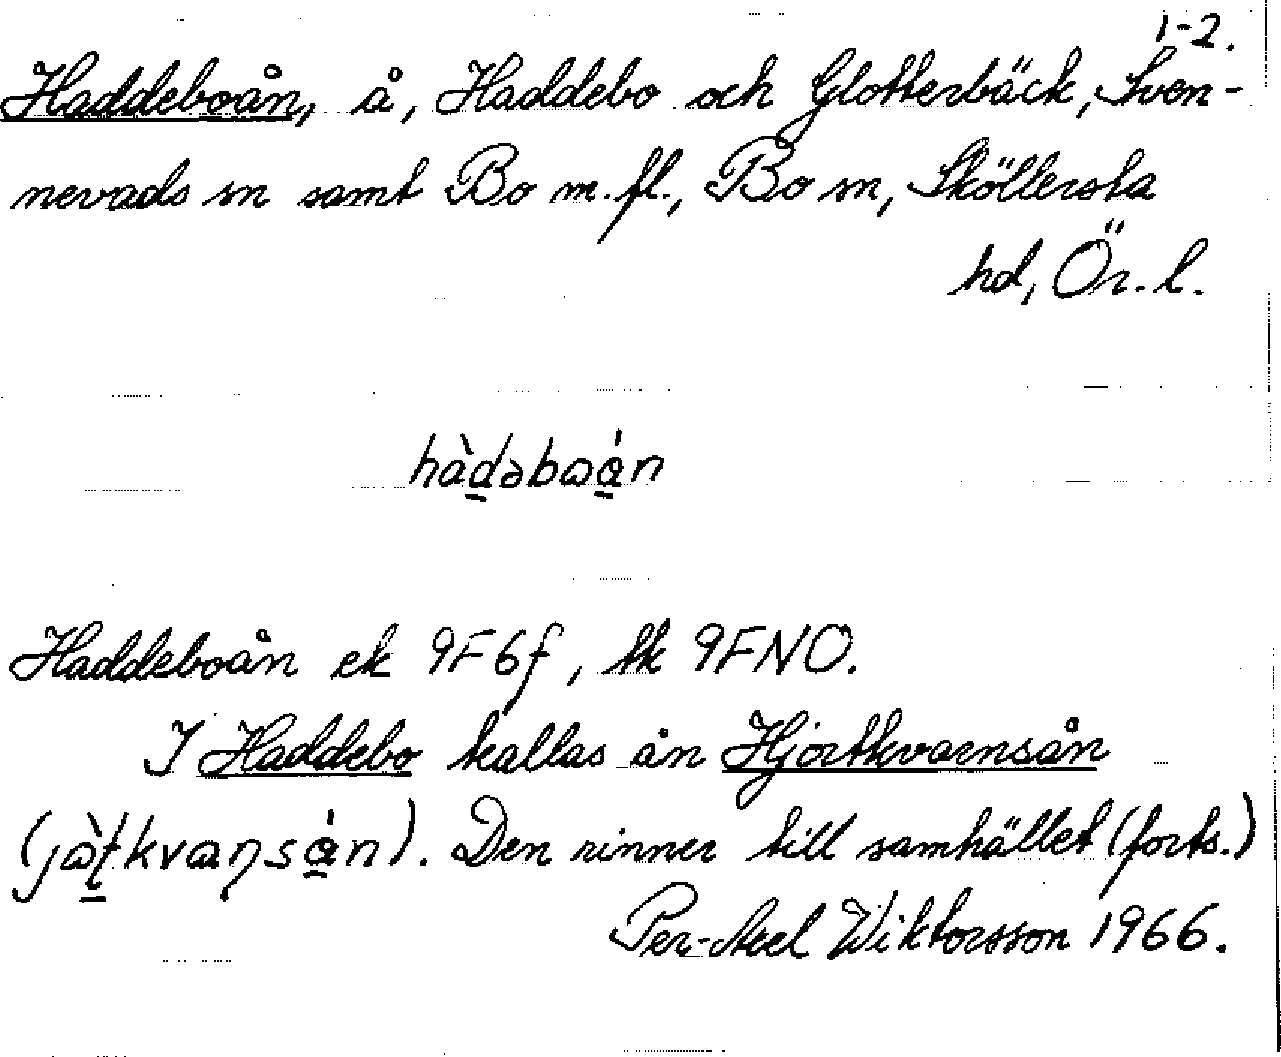 1-2.
Haddeboån, å, Haddebo och Glotterbäck, Sven-
nevads sn samt Bo m.fl., Bo sn, Sköllersta
hd, Ör. l.
hàd̲əbɷɑ̲́n
Haddeboån ek 9F6f, tk 9FNO.
I Haddebo kallas ån Hjortkvarnsån
(jàt̲kvaɳsɑ̲́n). Den rinner till samhället (forts.)
Per-Axel Wiktorsson 1966.